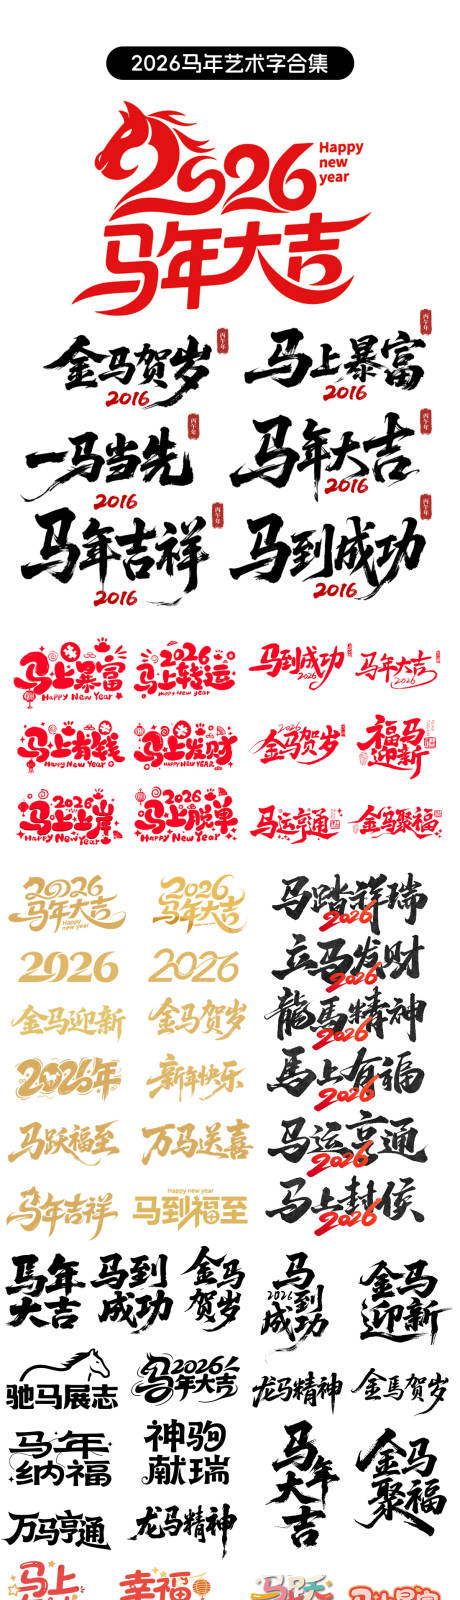 2026马年艺术字合集
2026
Happy
new
year
马年大吉
金马贺岁
2016
丙午年
马上暴富
2016
丙午年
一马当先
2016
丙午年
马年大吉
2016
丙午年
马年吉祥
2016
丙午年
马到成功
2016
丙午年
马上暴富
Happy New Year
2026
马上转运
Happy New year
马到成功
2026
马年大吉
2026
马上有钱
Happy New Year
马上发财
HAPPY NEW YEAR
2026
金马贺岁
福马
迎新
2026
马上上岸
Happy New Year
2026
马上脱单
Happy New Year
马运亨通
金马聚福
2026
马年大吉
Happy
new year
2026
马年大吉
马踏祥瑞
2026
2026
2026
立马发财
2026
金马迎新
金马贺岁
龍馬精神
2026
2026年
新年快乐
馬上有福
2026
马跃福至
万马送喜
马运亨通
2026
马年吉祥
Happy new year
马到福至
马上封侯
2026
馬年
大吉
马到
成功
金马
贺岁
马到
2026
成功
金马
迎新
驰马展志
2026
马年大吉
龙马精神
金馬贺岁
马年
纳福
神驹
献瑞
马年
大吉
金马
聚福
万马亨通
龙马精神
马上
幸福
马跃
马上暴富